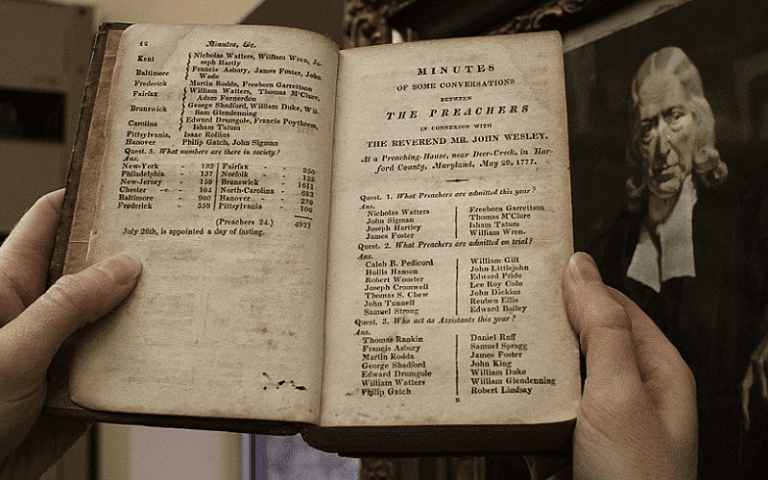 12 Minutes, &c.
Kent Nicholas Watters, William Wren, Jo-
seph Hartly
Baltimore Francis Asbury, James Foster, John
Wade
Frederick Martin Rodda, Freeborn Garrettson
Fairfax William Watters, Thomas M'Clure,
Adam Fornerdon
Brunswick George Shadford, William Duke, Wil-
liam Glendenning
Carolina Edward Drumgole, Francis Poythress,
Isham Tatum
Pittylvania, Isaac Rollins
Hanover Philip Gatch, John Sigman
Quest. 5. What numbers are there in society?
Ans.
New-York - 132 Fairfax - - 350
Philadelphia 137 Norfolk - - 125
New-Jersey - 150 Brunswick 1611
Chester - - 104 North-Carolina - 683
Baltimore 900 Hanover - - 270
Frederick 359 Pittylvania - 100
(Preachers 24.) 4921
July 26th, is appointed a day of fasting.
MINUTES
OF SOME CONVERSATIONS
BETWEEN
THE PREACHERS
IN CONNEXION WITH
THE REVEREND MR. JOHN WESLEY,
At a Preaching-House, near Deer-Creek, in Har-
ford County, Maryland, May 20, 1777.
Quest. 1. What Preachers are admitted this year?
Ans.
Nicholas Watters Freeborn Garrettson
John Sigman Thomas M'Clure
Joseph Hartley Isham Tatum
James Foster William Wren.
Quest. 2. What Preachers are admitted on trial?
Ans.
Caleb B. Pedicord William Gill
Hollis Hanson John Littlejohn
Robert Wooster Edward Pride
Joseph Cromwell Lee Roy Cole
Thomas S. Chew John Dickins
John Tunnell Reuben Ellis
Samuel Strong Edward Bailey
Quest. 3. Who act as Assistants this year?
Ans.
Thomas Rankin Daniel Ruff
Francis Asbury Samuel Spragg
Martin Rodda James Foster
George Shadford John King
Edward Drumgole William Duke
William Watters William Glendenning
Philip Gatch Robert Lindsay
B